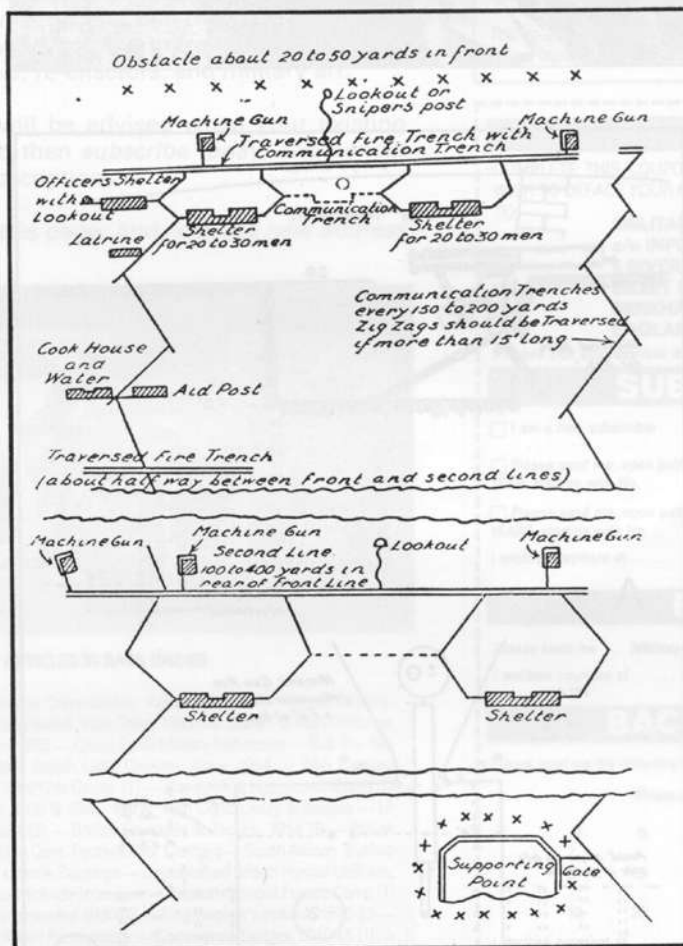 Obstacle about 20 to 50 yards in front
Lookout or
Snipers post
Machine Gun
Machine Gun
Traversed Fire Trench with
Communication Trench
Officers Shelter
with
Lookout
Communication
Trench
Shelter
for 20 to 30 men
Shelter
for 20 to 30 men
Latrine
Communication Trenches
every 150 to 200 yards
Zig Zags should be Traversed
if more than 15' long
Cook House
and
Water
Aid Post
Traversed Fire Trench
(about half way between front and second lines)
Machine Gun
Machine Gun
Second Line
100 to 400 yards in
rear of Front Line
Lookout
Machine Gun
Shelter
Shelter
Supporting
Point
Gate